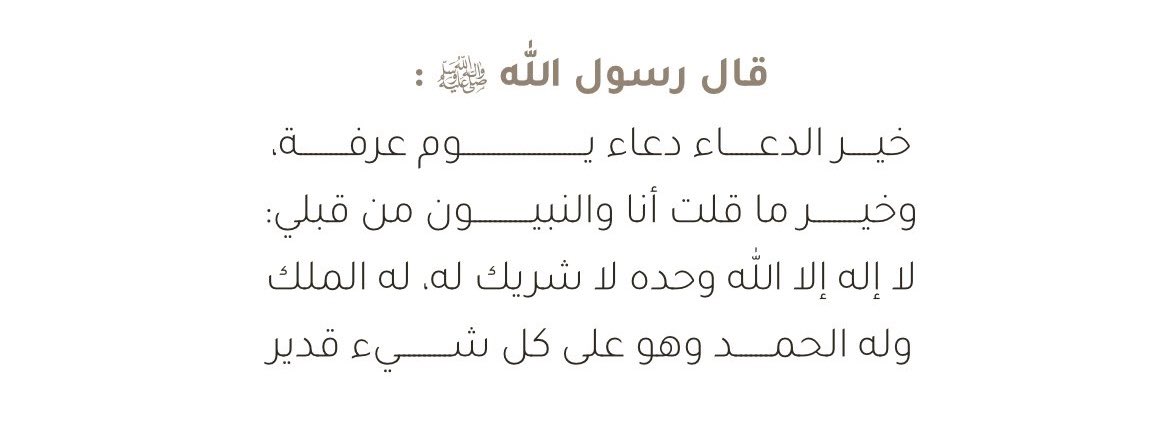 قال رسول الله ﷺ :
خيـــر الدعـــاء دعاء يـــــــــوم عرفـــــة،
وخيـــــر ما قلت أنا والنبيـــــون من قبلي:
لا إله إلا الله وحده لا شريك له، له الملك
وله الحمـــد وهو على كل شـــــيء قدير